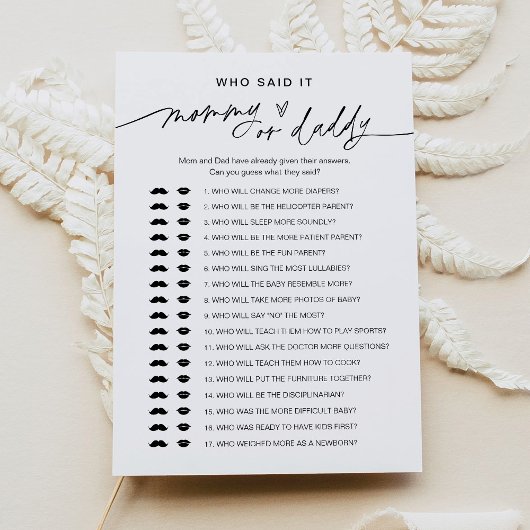 WHO SAID IT
mommy
or daddy
Mom and Dad have already given their answers.
Can you guess what they said?
1. WHO WILL CHANGE MORE DIAPERS?
2. WHO WILL BE THE HELICOPTER PARENT?
3. WHO WILL SLEEP MORE SOUNDLY?
4. WHO WILL BE THE MORE PATIENT PARENT?
5. WHO WILL BE THE FUN PARENT?
6. WHO WILL SING THE MOST LULLABIES?
7. WHO WILL THE BABY RESEMBLE MORE?
8. WHO WILL TAKE MORE PHOTOS OF BABY?
9. WHO WILL SAY "NO" THE MOST?
10. WHO WILL TEACH THEM HOW TO PLAY SPORTS?
11. WHO WILL ASK THE DOCTOR MORE QUESTIONS?
12. WHO WILL TEACH THEM HOW TO COOK?
13. WHO WILL PUT THE FURNITURE TOGETHER?
14. WHO WILL BE THE DISCIPLINARIAN?
15. WHO WAS THE MORE DIFFICULT BABY?
16. WHO WAS READY TO HAVE KIDS FIRST?
17. WHO WEIGHED MORE AS A NEWBORN?